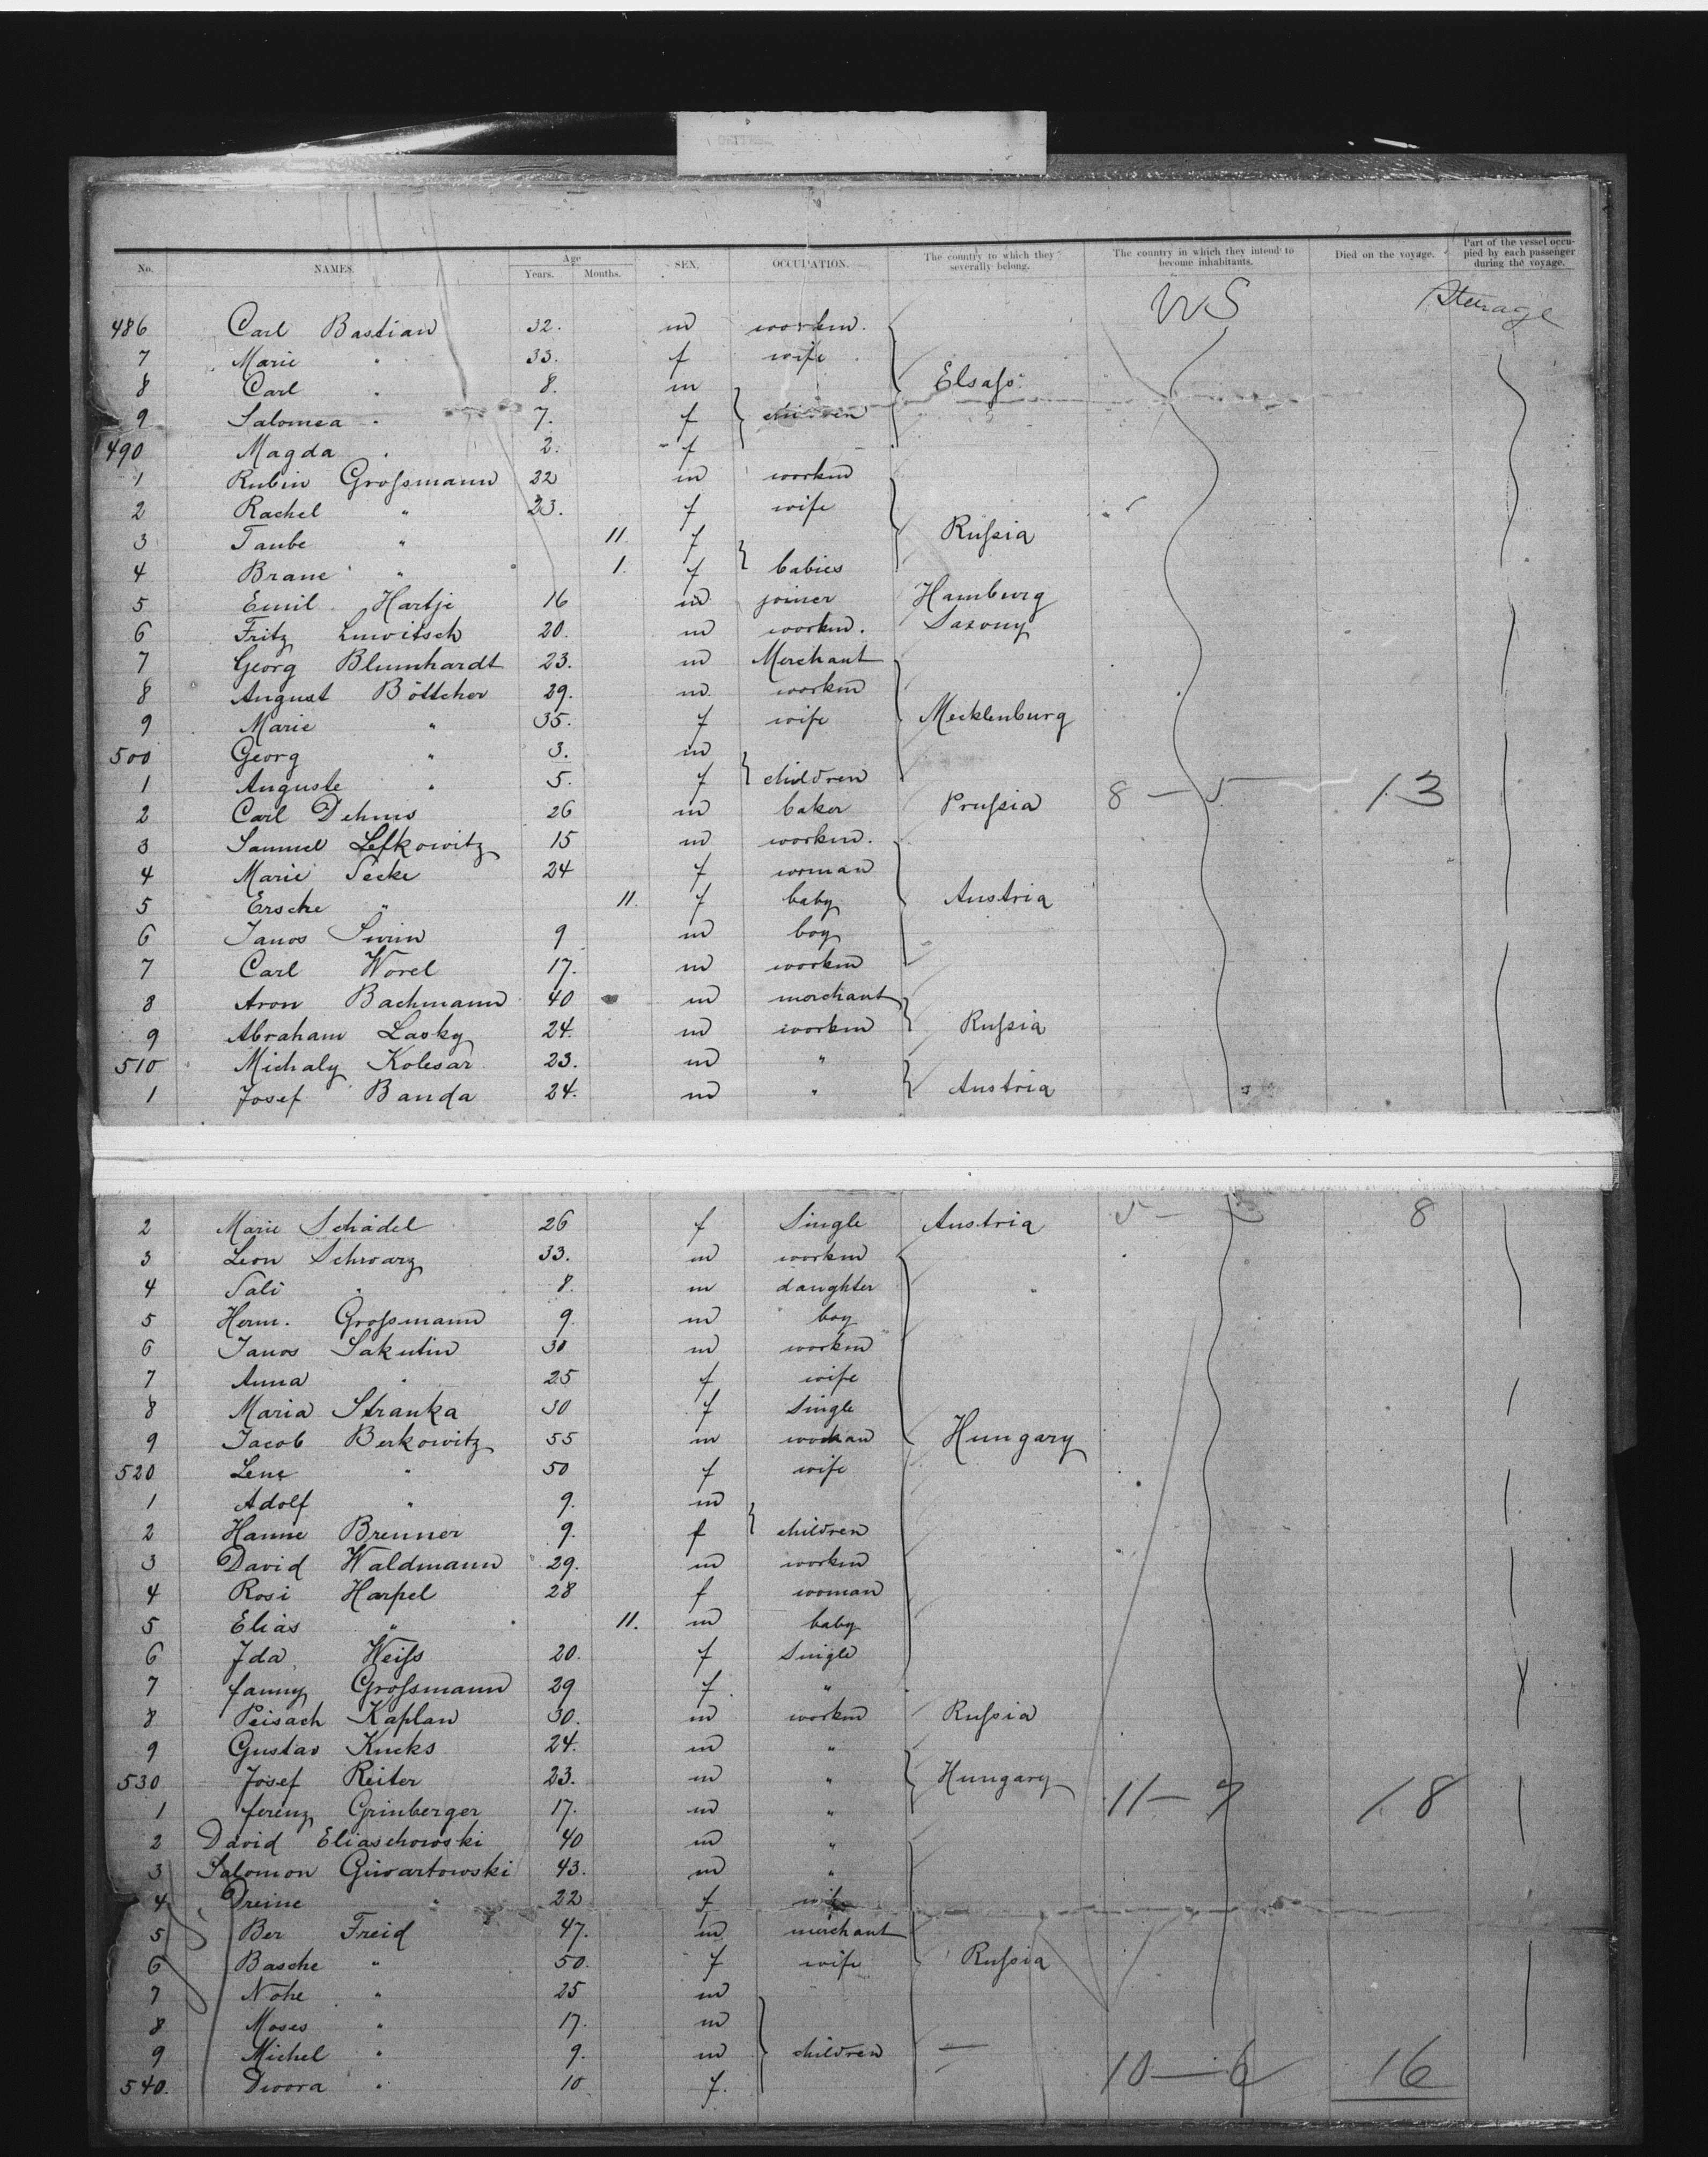 No. NAMES. Age Years. Months. SEX. OCCUPATION. The country to which they severally belong. The country in which they intend to become inhabitants. Died on the voyage. Part of the vessel occupied by each passenger during the voyage.
US Steerage
486 Carl Bastian 32. m workm.
7 Marie " 33. f wife
8 Carl " 8. m Elsaſs
9 Salomea " 7. f children
490 Magda " 2. f
1 Rubin Groſsmann 22 m workm
2 Rachel " 23. f wife
3 Taube " 11. f Ruſsia
4 Brane " 1. f babies
5 Emil Hartje 16 m joiner Hamburg
6 Fritz 20. m workm. Saxony
7 Georg Blumhardt 23. m Merchant
8 August Böttcher 29. m workm
9 Marie " 35. f wife Mecklenburg
500 Georg " 3. m
1 Auguste " 5. f children
2 Carl Dehms 26 m baker Pruſsia 8 — 5 13
3 Samuel Lefkowitz 15 m workm.
4 Marie 24 f woman
5 Ersche " 11. f baby Austria
6 Janos 9 m boy
7 Carl Worel 17. m workm
8 Aron Bachmann 40 m merchant
9 Abraham Lasky 24. m workm Ruſsia
510 Michaly Kolesar 23. m "
1 Josef Banda 24. m " Austria
2 Marie Schädel 26 f Single Austria 5 — 3 8
3 Leon Schwarz 33. m workm
4 Sali " 8. m daughter
5 Herm. Groſsmann 9. m boy
6 Janos Sakutin 30 m workm
7 Anna " 25 f wife
8 Maria Stranka 30 f Single
9 Jacob Berkowitz 55 m Hungary
520 Lene " 50 f wife
1 Adolf " 9. m
2 Hanne Brenner 9. f children
3 David Waldmann 29. m workm
4 Rosi Harpel 28 f woman
5 Elias " 11. m baby
6 Ida Weiſs 20. f Single
7 fanny Groſsmann 29 f "
8 Peisach Kaplan 30. m workm Ruſsia
9 Gustav Kucks 24. m "
530 Josef Reiter 23. m " Hungary 11 — 7 18
1 ferenz Grinberger 17. m "
2 David Eliaschowski 40 m "
3 Salomon Giwartowski 43. m "
4 Dreine " 22 f wife
5 Ber Freid 47. m merchant
6 Basche " 50. f wife Ruſsia
7 Nohe " 25 m
8 Moses " 17. m
9 Michel " 9. m children
540. Dwora " 10 f. 10 — 6 16